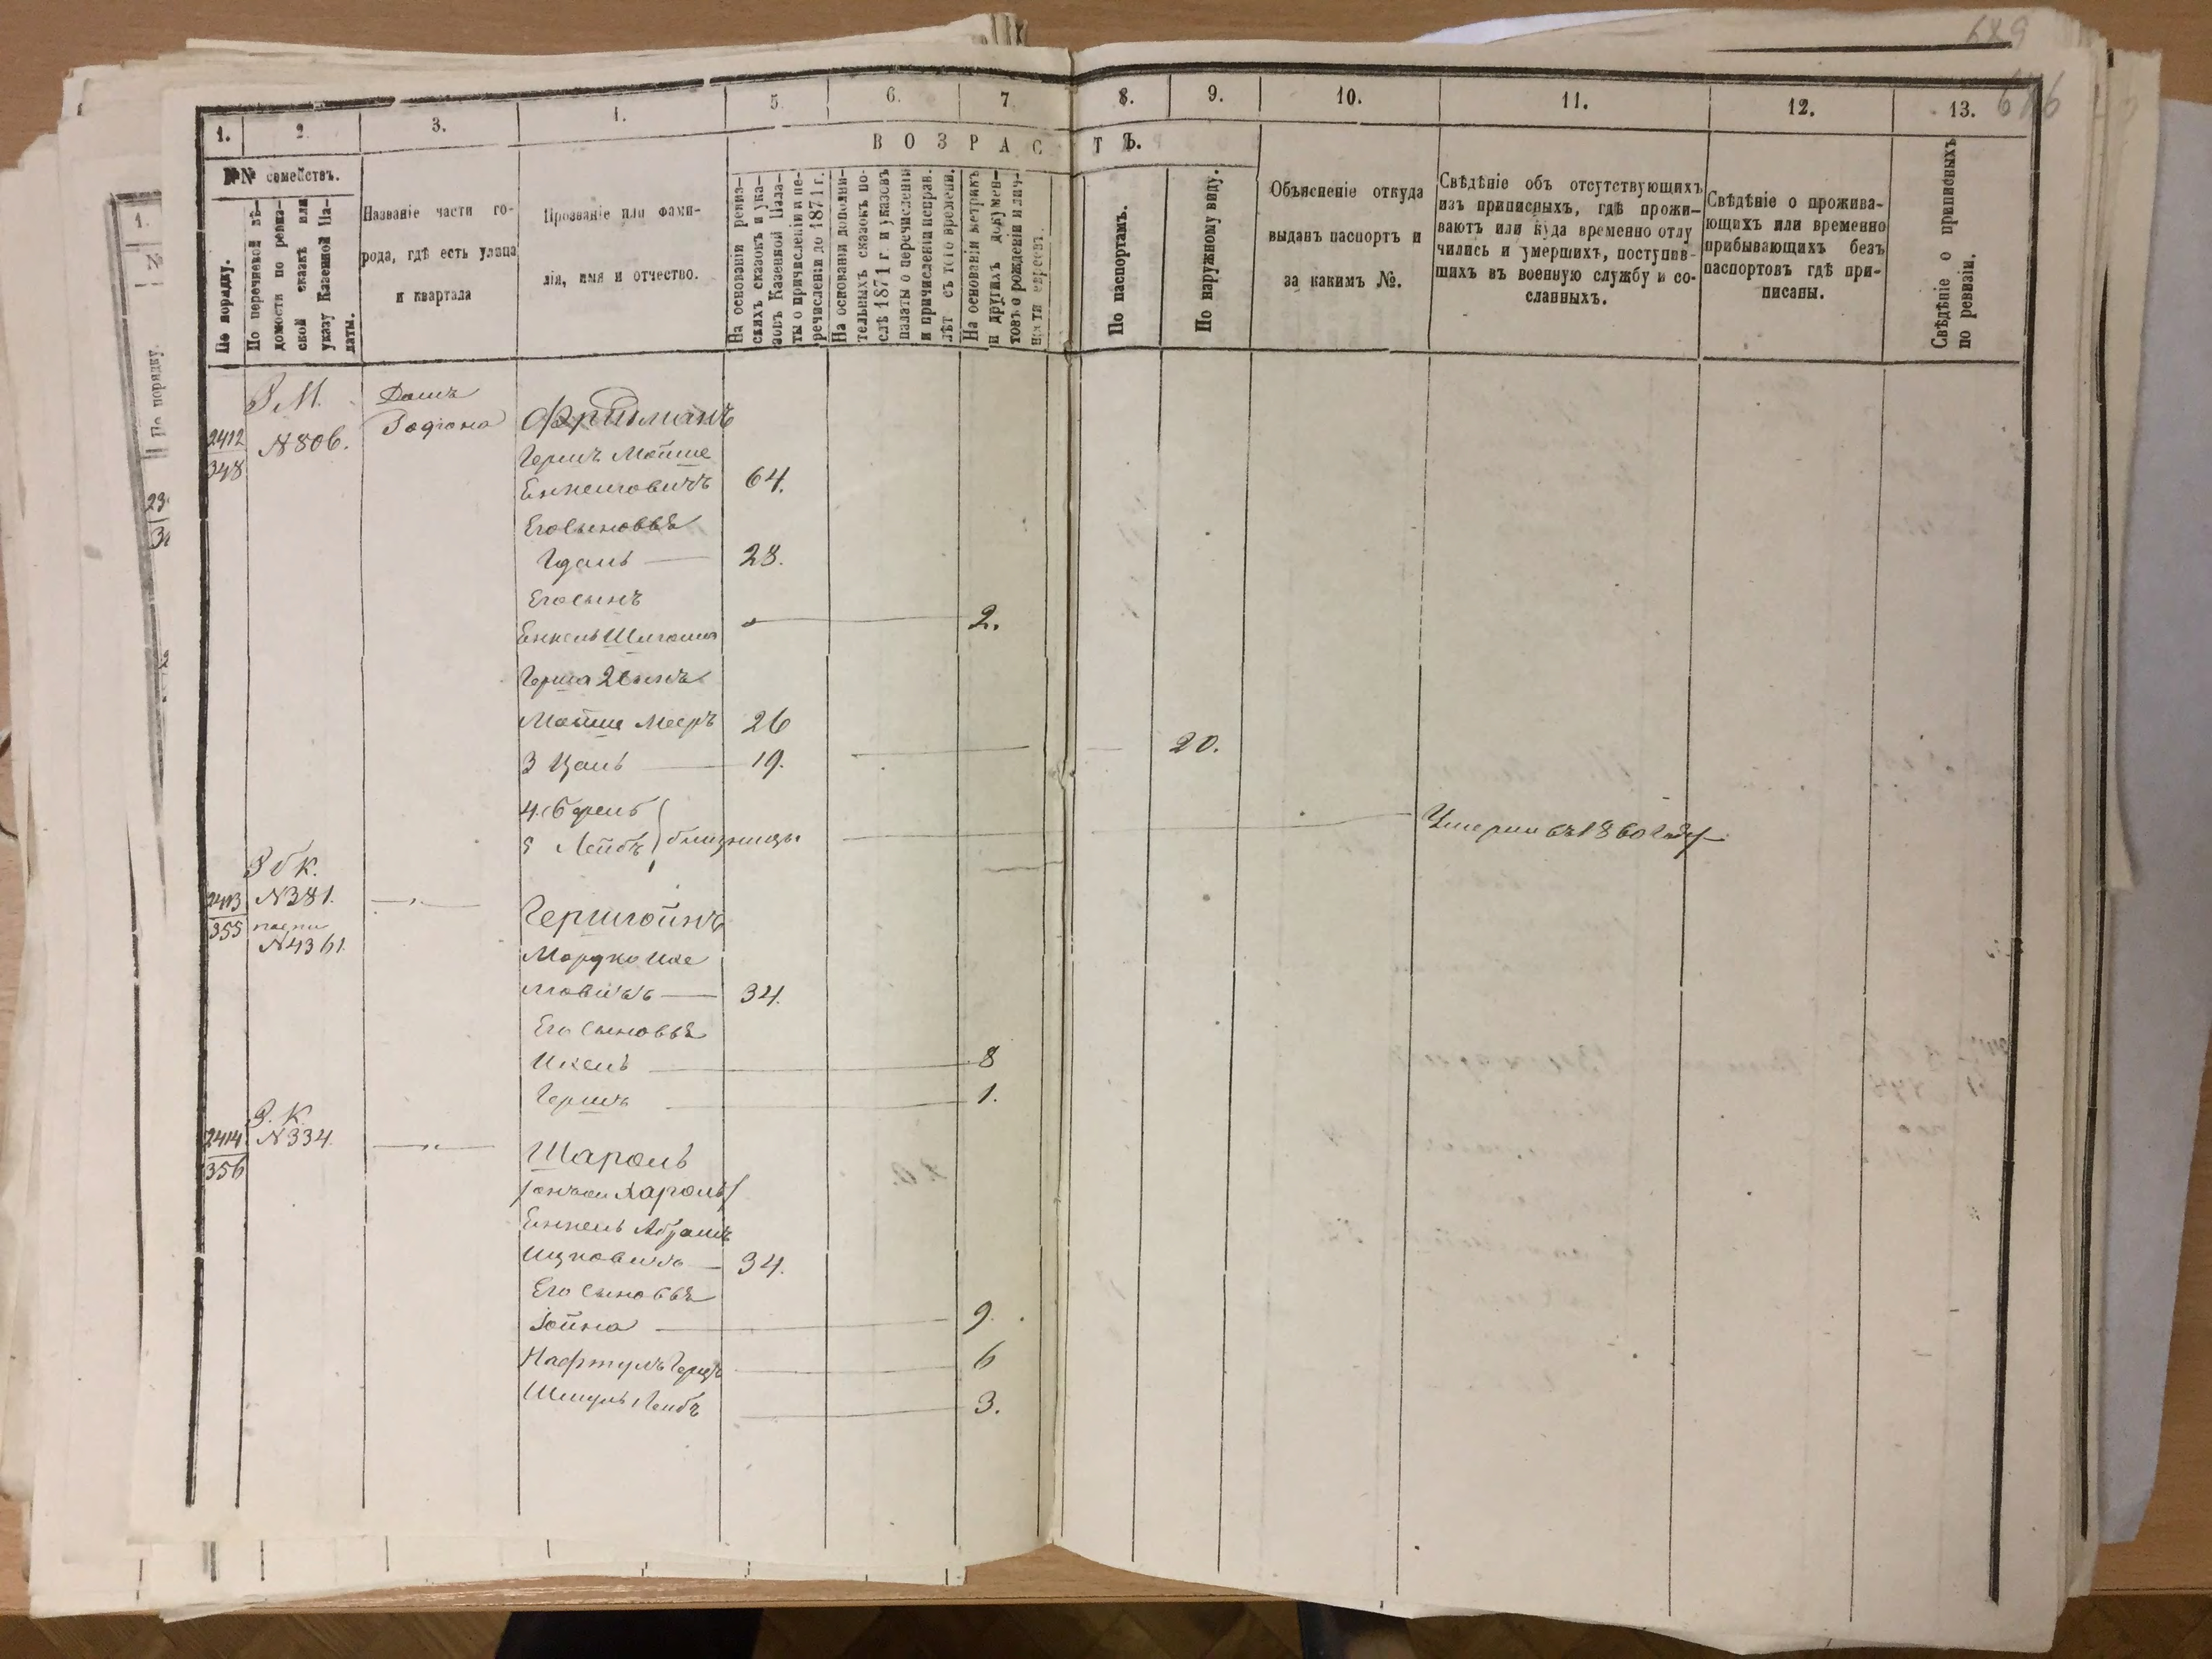 689
686
1.
2.
3.
4.
5.
6.
7.
8.
9.
10.
11.
12.
13.
ВОЗРАСТЪ.
№№ семействъ.
По порядку.
По перечневой вѣ-
домости по ревиз-
ской сказкѣ или
указу Казенной Па-
латы.
Названіе части го-
рода, гдѣ есть улица
и квартала
Прозваніе или фами-
лія, имя и отчество.
На основаніи ревиз-
скихъ сказокъ и ука-
зовъ Казенной Пала-
ты о причисленіи и пе-
речисленіи до 1871 г.
На основаніи дополни-
тельныхъ сказокъ по-
слѣ 1871 г. и указовъ
палаты о перечисленіи
и причисленіи неправ.
лѣт съ того времени.
На основаніи метрикъ
и другихъ докумен-
товъ о рожденіи и лич-
ности евреевъ.
По паспортамъ.
По наружному виду.
Объясненіе откуда
выданъ паспортъ и
за какимъ №.
Свѣдѣніе объ отсутствующихъ
изъ приписныхъ, гдѣ прожи-
ваютъ или куда временно отлу
чились и умершихъ, поступив-
шихъ въ военную службу и со-
сланныхъ.
Свѣдѣніе о прожива-
ющихъ или временно
прибывающихъ безъ
паспортовъ гдѣ при-
писаны.
Свѣдѣніе о приписныхъ
по ревизіи.
1.
По порядку.
Р М.
2412
348
N 806.
Домъ
Гершъ Мойше
Енкелговичъ 64.
Его Сыновья
28.
Его Сынъ
Енкель 2.
Герша 2 Сынъ
Мойше Мееръ 26
3 19. 20.
4.
5 Лейбъ близнецы Умерли въ 1860 году
Р б К.
2413
355
N 381.
N 4361
Гершгойнъ
Мордко Ице
ковичъ 34.
Его Сыновья
Ицель 8
Гершъ 1.
Р. К.
2414
356
N 334.
Шароль
Енкель Абрамъ
Ицковичъ 34.
Его Сыновья
Іойна 9.
Нафтулъ Герцъ 6
Шмуль Лейбъ 3.